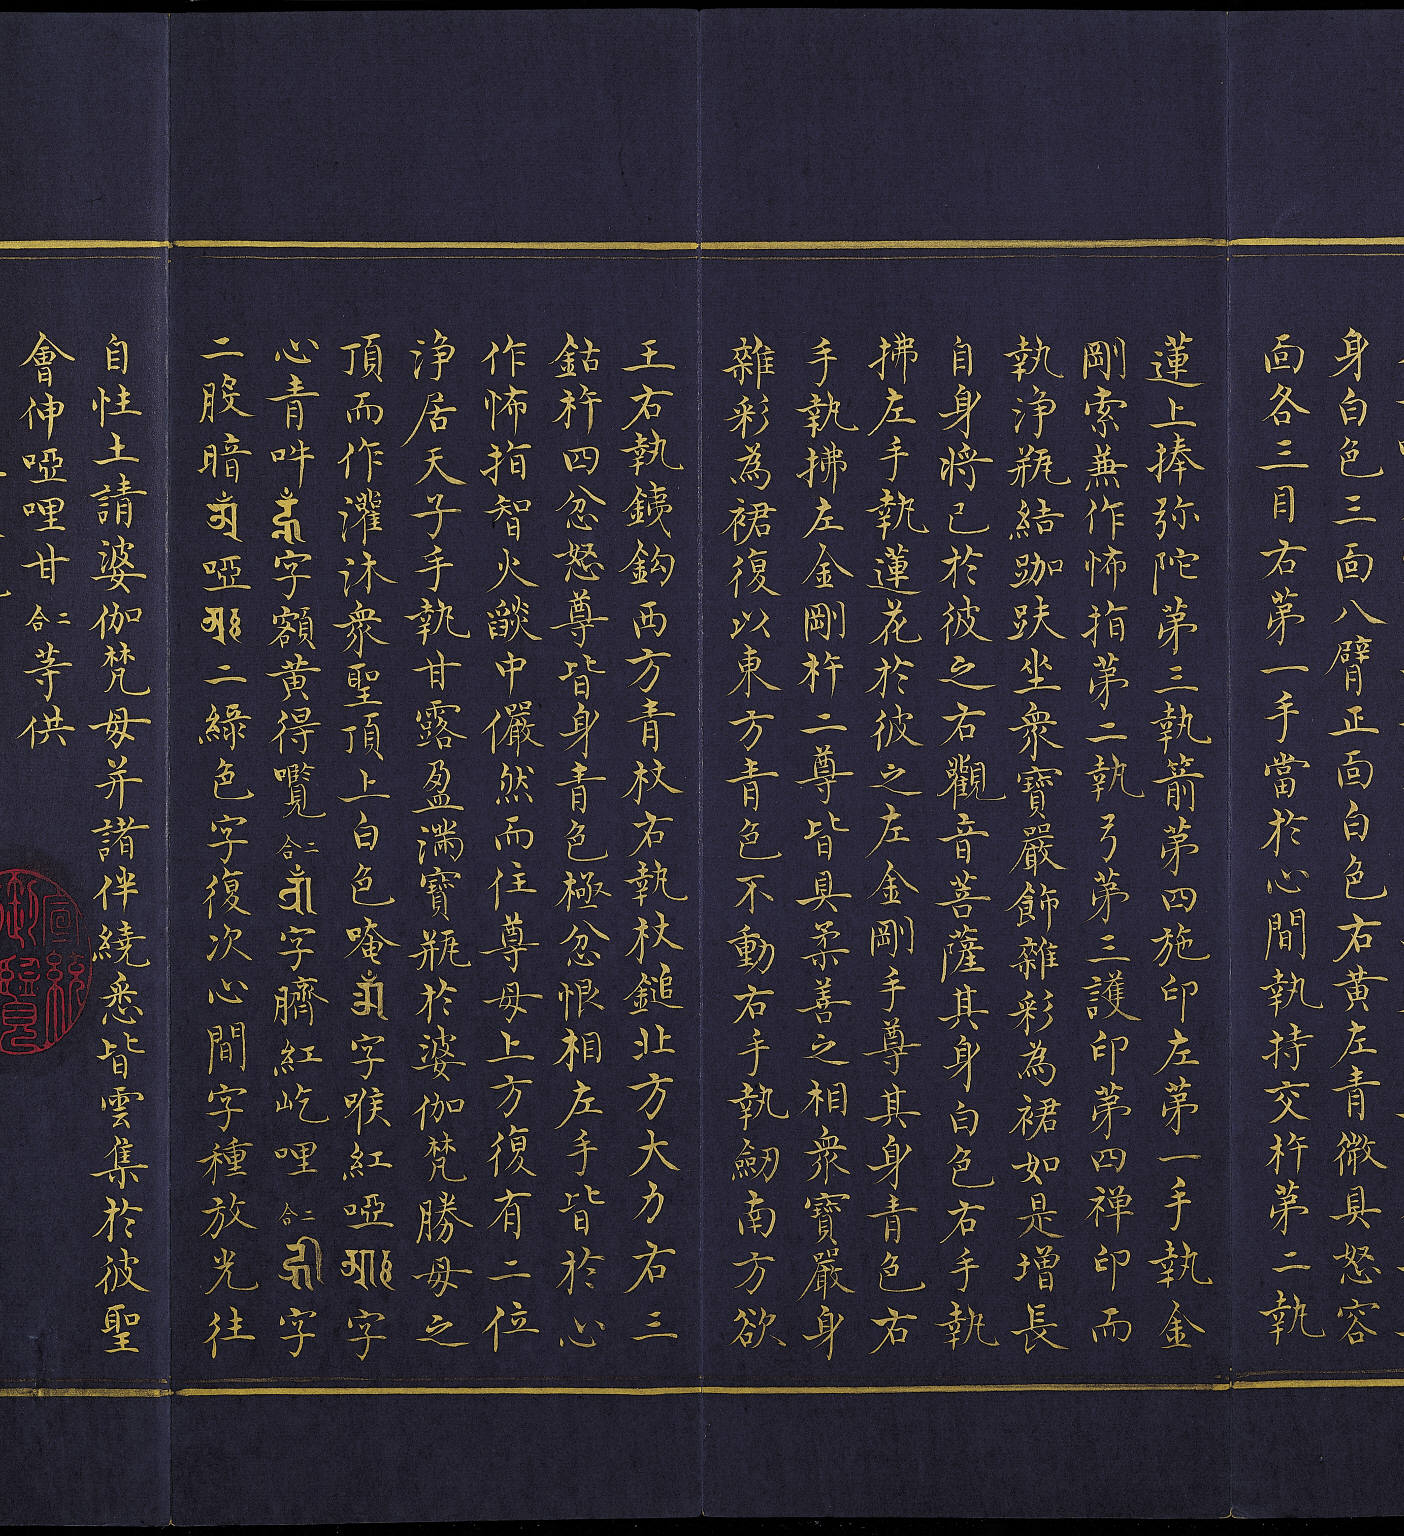 身白色三面八臂正面白色右黃左青微具怒容
面各三目右第一手當於心間執持交杵第二執
蓮上捧弥陀第三執箭第四施印左第一手執金
剛索蕪作怖指第二執弓第三護印第四禅印而
執淨瓶結跏趺坐衆寶嚴飾雜彩為裙如是增長
自身將已於彼之右觀音菩薩其身白色右手執
拂左手執蓮花於彼之左金剛手尊其身青色右
手執拂左金剛杵二尊皆具柔善之相衆寶嚴身
雜彩為裙復以東方青色不動右手執劒南方欲
王右執鐵鈎西方青杖右執杖鎚北方大力右三
鈷杵四忿怒尊皆身青色極忿恨相左手皆於心
作怖指智火燄中儼然而住尊母上方復有二位
淨居天子手執甘露盈滿寶瓶於婆伽梵勝母之
頂而作灌沐衆聖頂上白色唵ॐ字喉紅啞字
心青吽字額黃得囕二合字臍紅屹哩二合字
二股暗啞二綠色字復次心間字種放光往
自性土請婆伽梵母并諸伴繞悉皆雲集於彼聖
會伸啞哩甘二合等供
宣統御覽